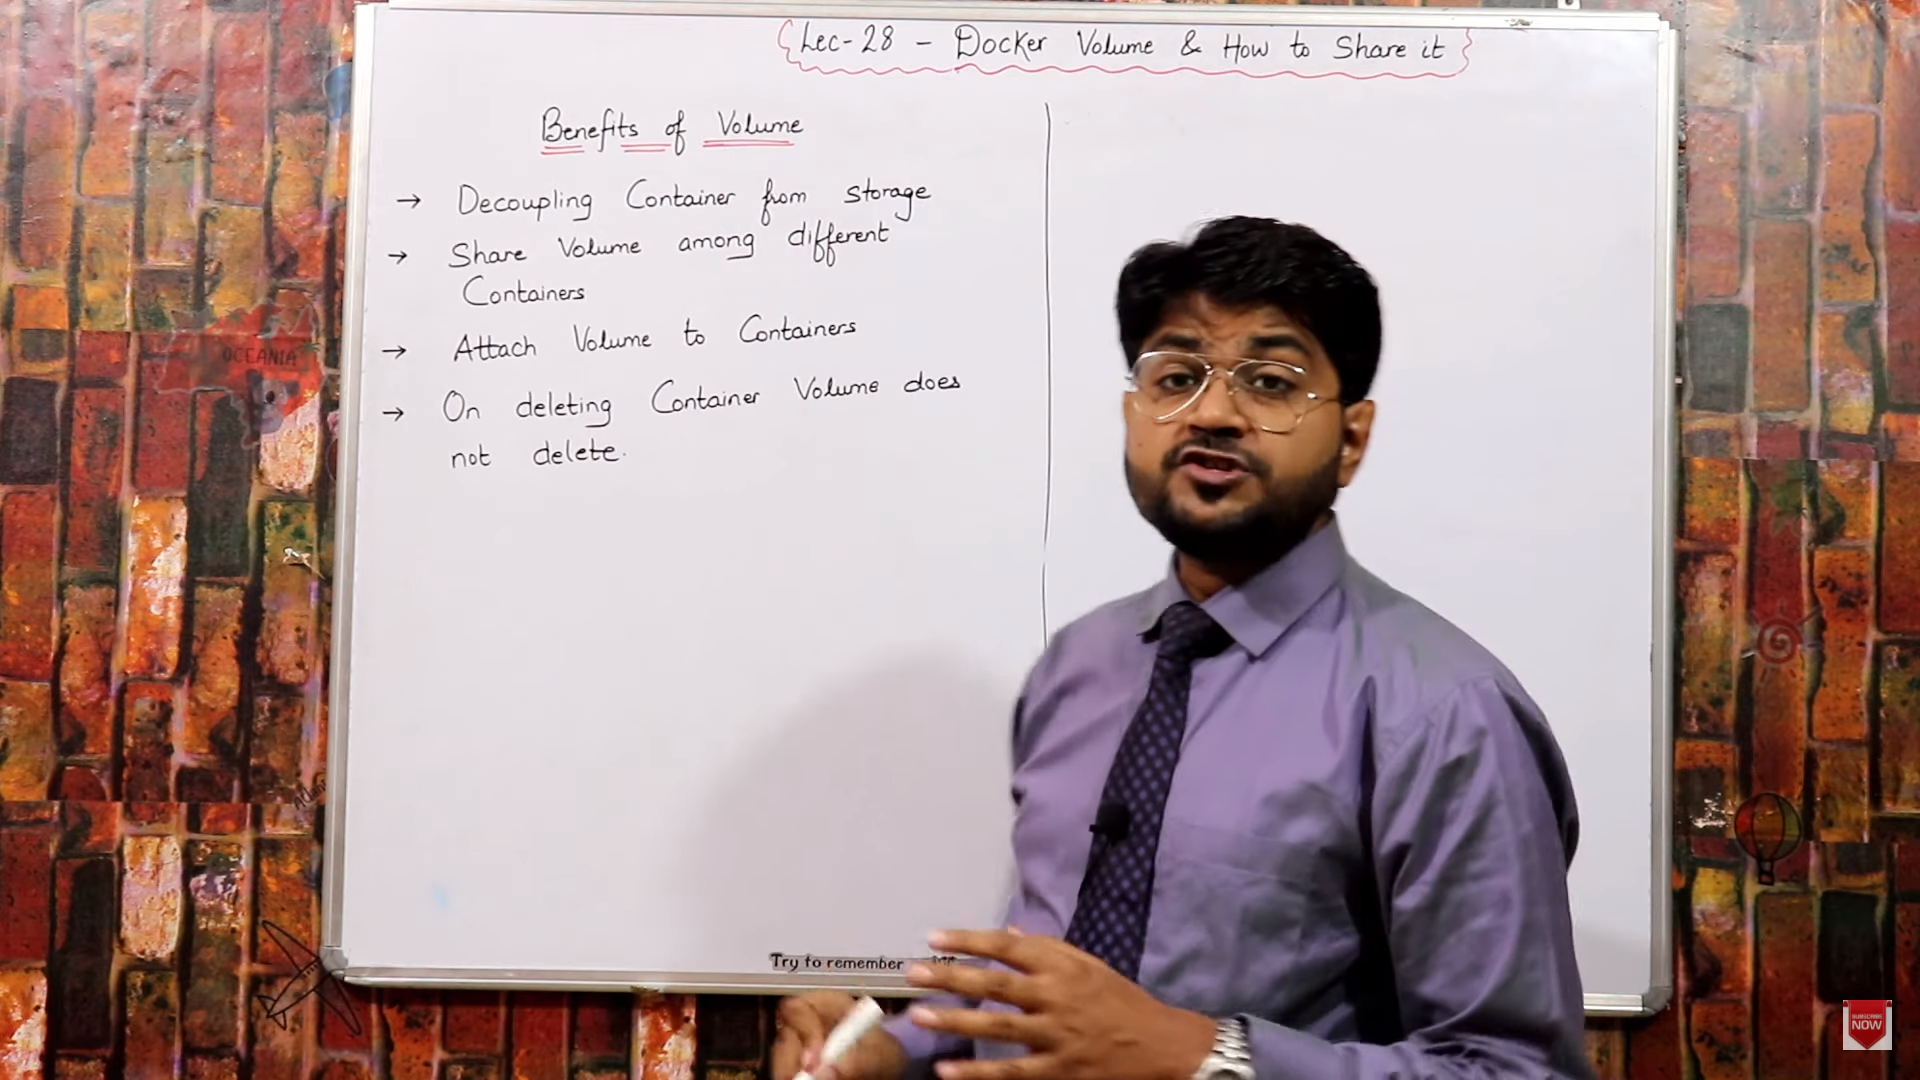 Lec-28 - Docker Volume & How to Share it
Benefits of Volume
→ Decoupling Container from storage
→ Share Volume among different
Containers
→ Attach Volume to Containers
→ On deleting Container Volume does
not delete.
OCEANIA
Try to remember
SUBSCRIBE
NOW